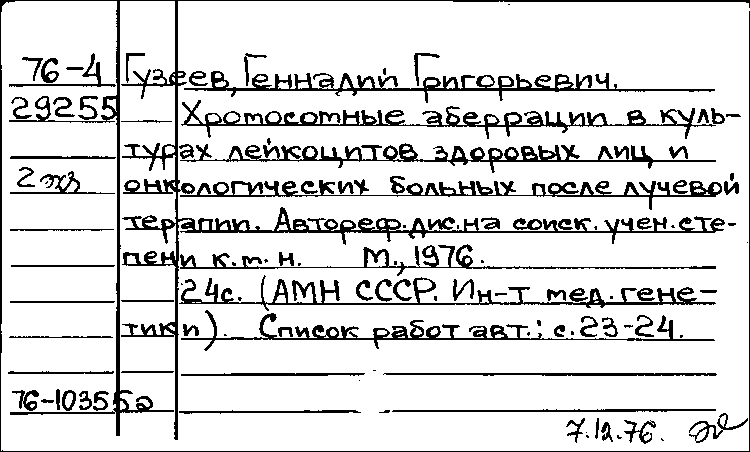 76-4 Гузеев, Геннадий Григорьевич.
29255 Хромосомные аберрации в куль-
турах лейкоцитов здоровых лиц и
2 экз онкологических больных после лучевой
терапии. Автореф.дис.на соиск.учен.сте-
пени к.м.н. М., 1976.
24с. (АМН СССР. Ин-т мед.гене-
тики). Список работ авт.: с.23-24.
76-10355а
7.12.76.